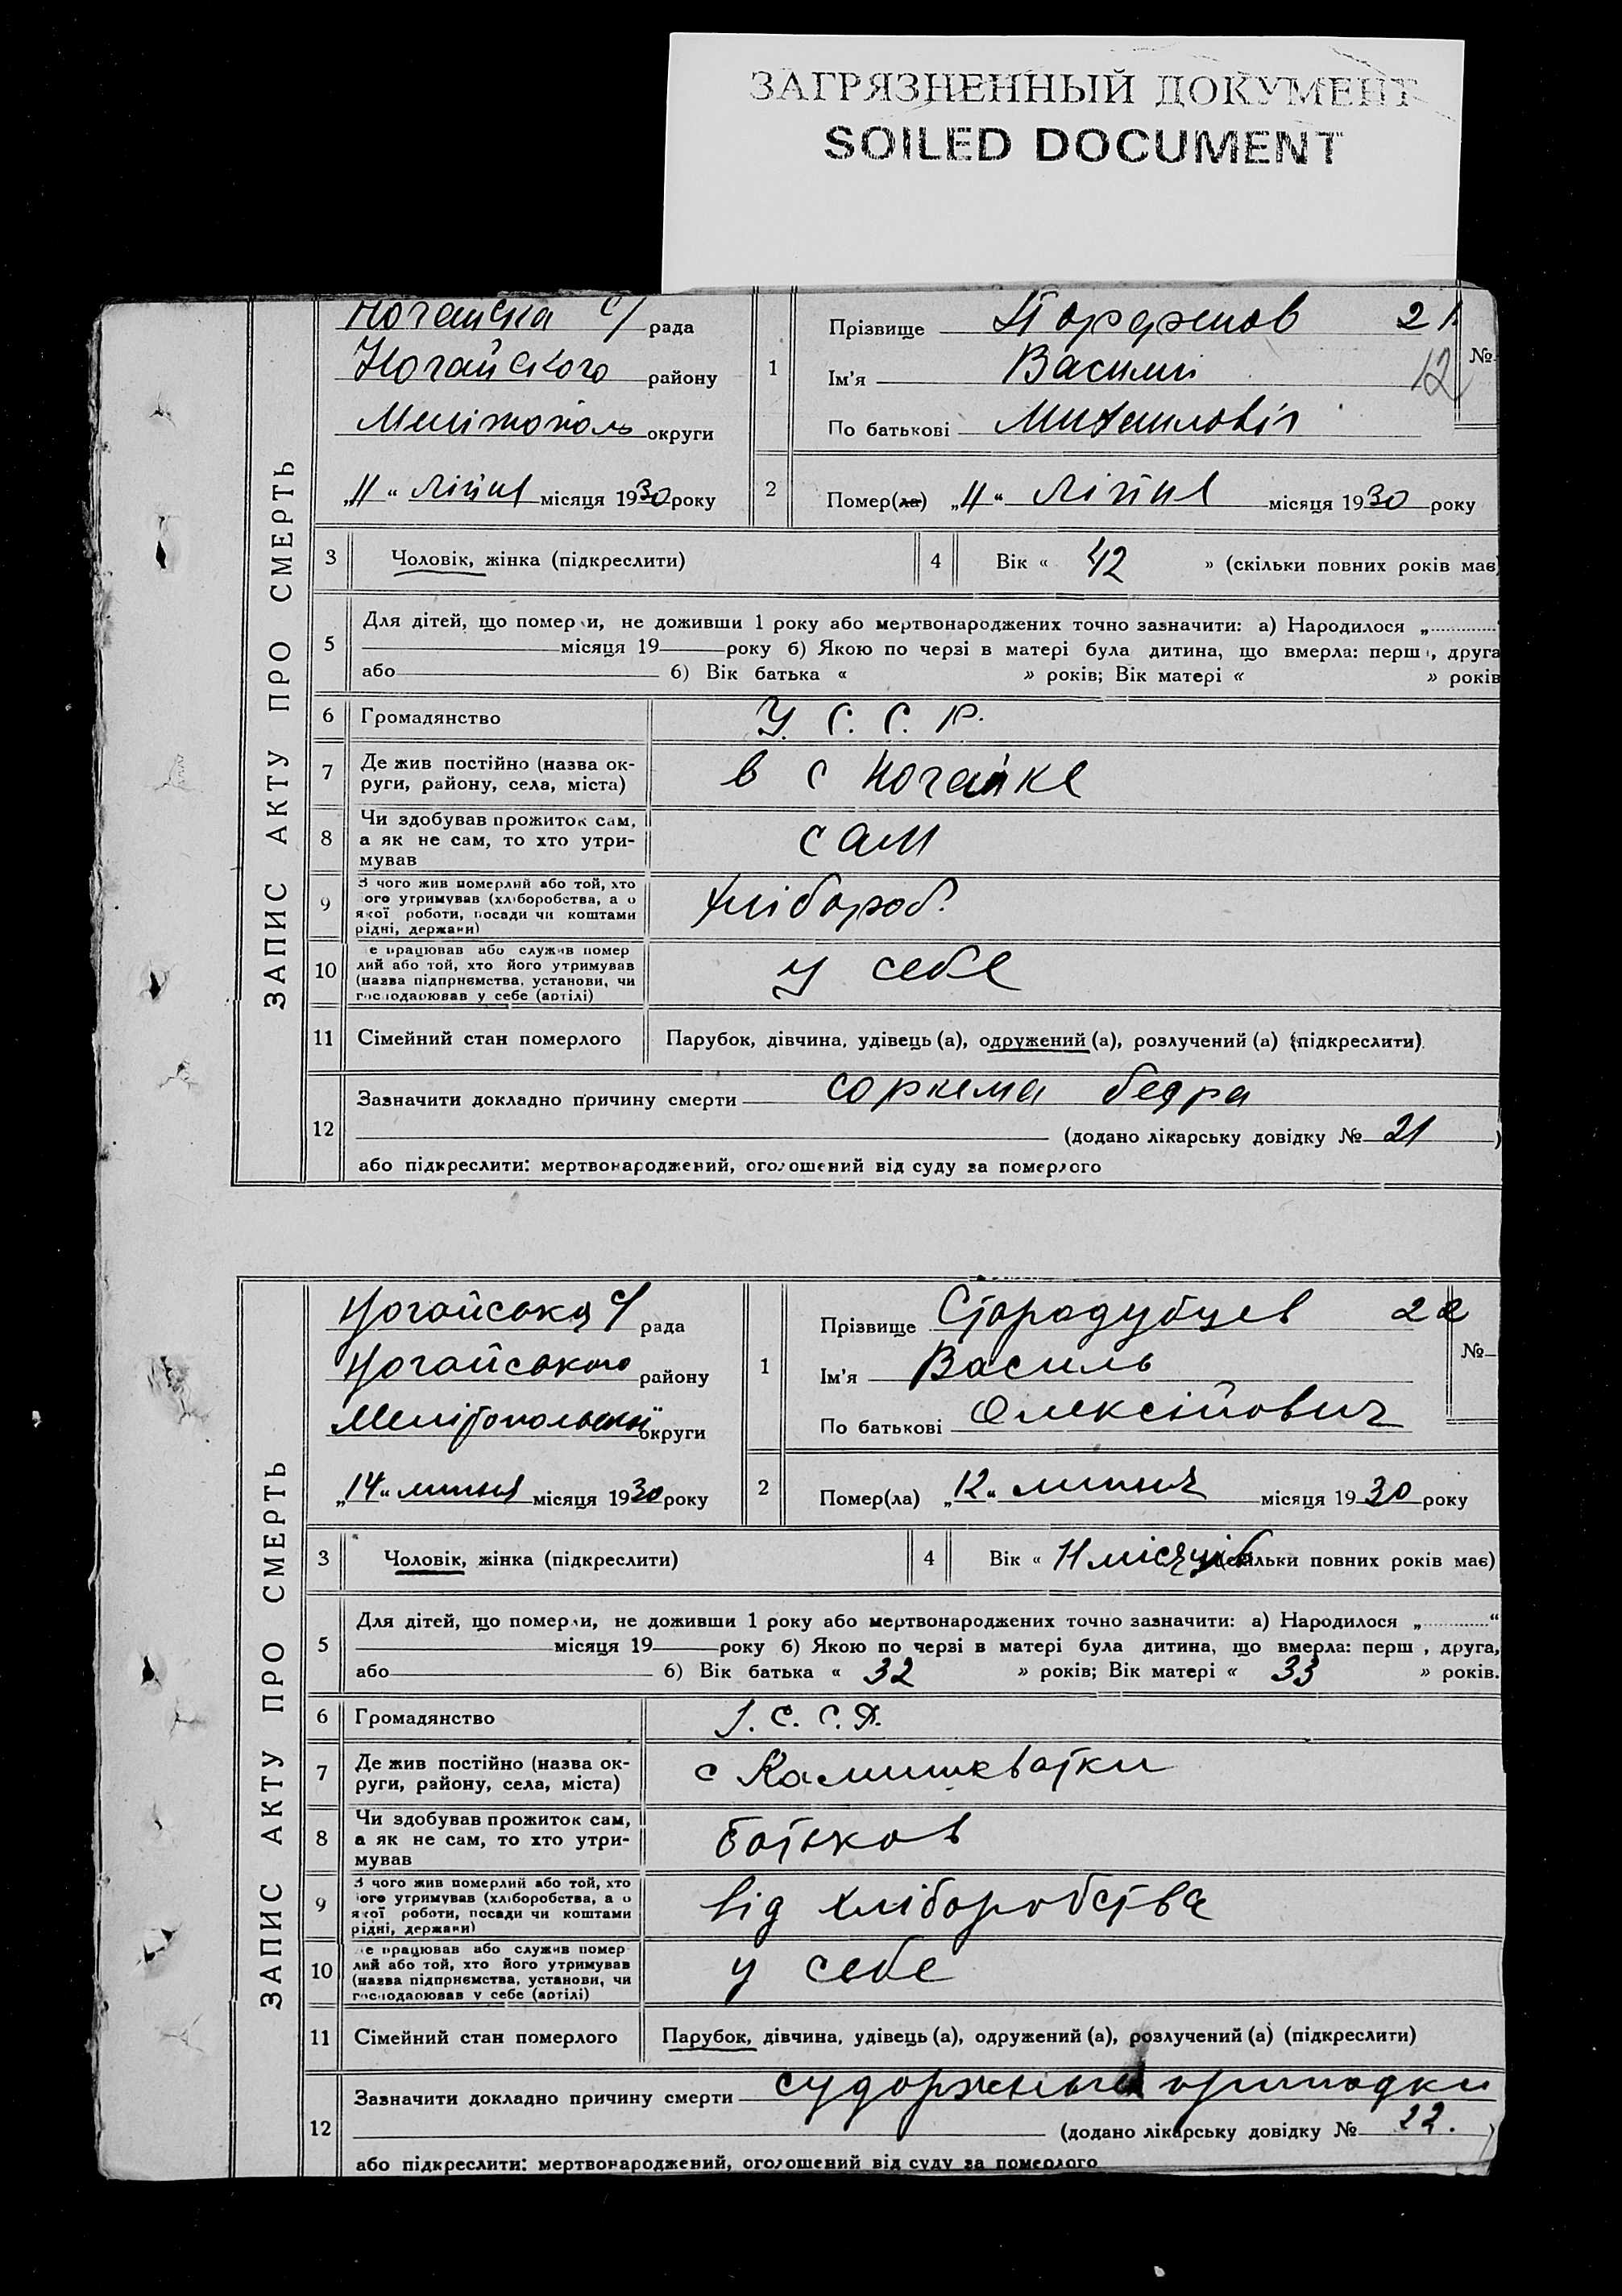 ЗАГРЯЗНЕННЫЙ ДОКУМЕНТ
SOILED DOCUMENT
ЗАПИС АКТУ ПРО СМЕРТЬ
Ногайска с/ рада
Ногайского району
Мелітополь округи
„11“ Ліпня місяця 1930 року
1 Прізвище 21
Ім'я Василий
По батькові Михайловіч
№
12
2 Помер(ла) „11“ Ліпня місяця 1930 року
3 Чоловік, жінка (підкреслити)
4 Вік « 42 » (скільки повних років має)
5 Для дітей, що померли, не доживши 1 року або мертвонароджених точно зазначити: а) Народилося „
місяця 19 року б) Якою по черзі в матері була дитина, що вмерла: перш , друга
або б) Вік батька « » років; Вік матері « » років
6 Громадянство У. С. С. Р.
7 Де жив постійно (назва ок-
руги, району, села, міста) в с Ногайке
8 Чи здобував прожиток сам,
а як не сам, то хто утри-
мував сам
9 З чого жив померлий або той, хто
ого утримував (хліборобства, а о
якої роботи, посади чи коштами
рідні, держави) хлібороб.
10 е працював або служив помер
лий або той, хто його утримував
(назва підприємства, установи, чи
господарював у себе (артілі) у себе
11 Сімейний стан померлого Парубок, дівчина, удівець (а), одружений (а), розлучений (а) (підкреслити).
12 Зазначити докладно причину смерти соркома бедра
(додано лікарську довідку № 21 )
або підкреслити: мертвонароджений, оголошений від суду за померлого
ЗАПИС АКТУ ПРО СМЕРТЬ
Ногайська с/ рада
Ногайського району
Мелітопольської округи
„14“ липня місяця 1930 року
1 Прізвище Стародубцев 22
Ім'я Василь
По батькові Олексійович
№
2 Помер(ла) „12“ липня місяця 1930 року
3 Чоловік, жінка (підкреслити)
4 Вік « 11 місяців (скільки повних років має)
5 Для дітей, що померли, не доживши 1 року або мертвонароджених точно зазначити: а) Народилося „ “
місяця 19 року б) Якою по черзі в матері була дитина, що вмерла: перш , друга,
або б) Вік батька « 32 » років; Вік матері « 33 » років.
6 Громадянство У. С. С. Р.
7 Де жив постійно (назва ок-
руги, району, села, міста) с Камишеватки
8 Чи здобував прожиток сам,
а як не сам, то хто утри-
мував батьков
9 З чого жив померлий або той, хто
ого утримував (хліборобства, а о
якої роботи, посади чи коштами
рідні, держави) від хліборобства
10 е працював або служив помер
лий або той, хто його утримував
(назва підприємства, установи, чи
господарював у себе (артілі) у себе
11 Сімейний стан померлого Парубок, дівчина, удівець (а), одружений (а), розлучений (а) (підкреслити)
12 Зазначити докладно причину смерти судорженыя припадки
(додано лікарську довідку № 22. )
або підкреслити: мертвонароджений, оголошений від суду за померлого